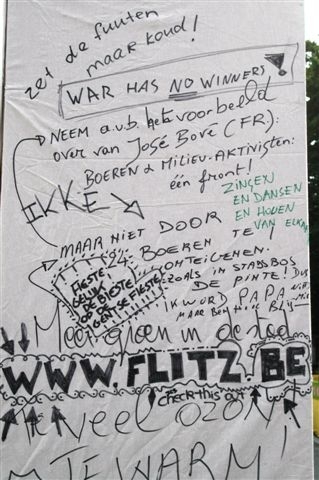 zet de fuuten
maar koud!
WAR HAS NO WINNERS!
NEEM a.u.b. het voorbeeld
over van José Bové (FR):
BOEREN & MILIEU-AKTIVISTEN:
één front!
IKKE
ZINGEN
EN DANSEN
EN HOUEN
VAN ELKAA
MAAR NIET DOOR
BOEREN TE
ONTEIGENEN.
ZOALS IN STADSBOS
DE PINTE! DUS
IK WORD PAPA
MAAR BEN HEEL BLIJ
FIESTE
GELIJK
OP DE BIESTE
GENTSE FIESTE
Meer groen in de stad
WWW.FLITZ.BE
check this out
Teveel OZON!
TE WARM!